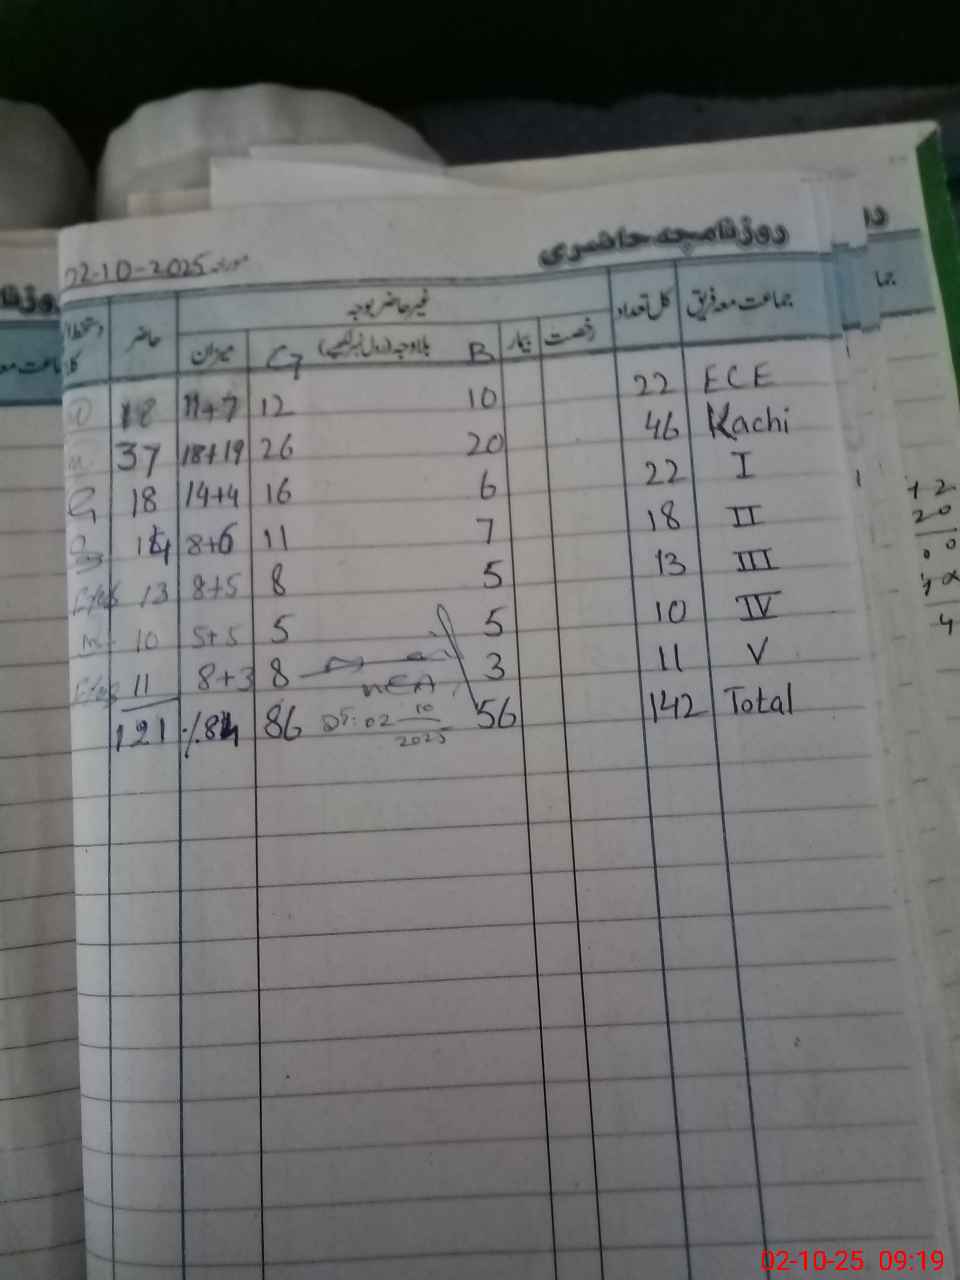 روزنامچہ حاضری
مورخہ 02-10-2025
جماعت معہ فریق کل تعداد غیر حاضر بوجہ حاضر
رخصت بیمار B بلاوجہ (رول نمبر لکھیے) G میزان
ECE 22 10 12 11+7 18
Kachi 46 20 26 18+19 37
I 22 6 16 14+4 18
II 18 7 11 8+6 14
III 13 5 8 8+5 13
IV 10 5 5 5+5 10
V 11 3 8 8+3 11
MEA
Total 142 56 86 %84 121
DT: 02 10 2025
02-10-25 09:19